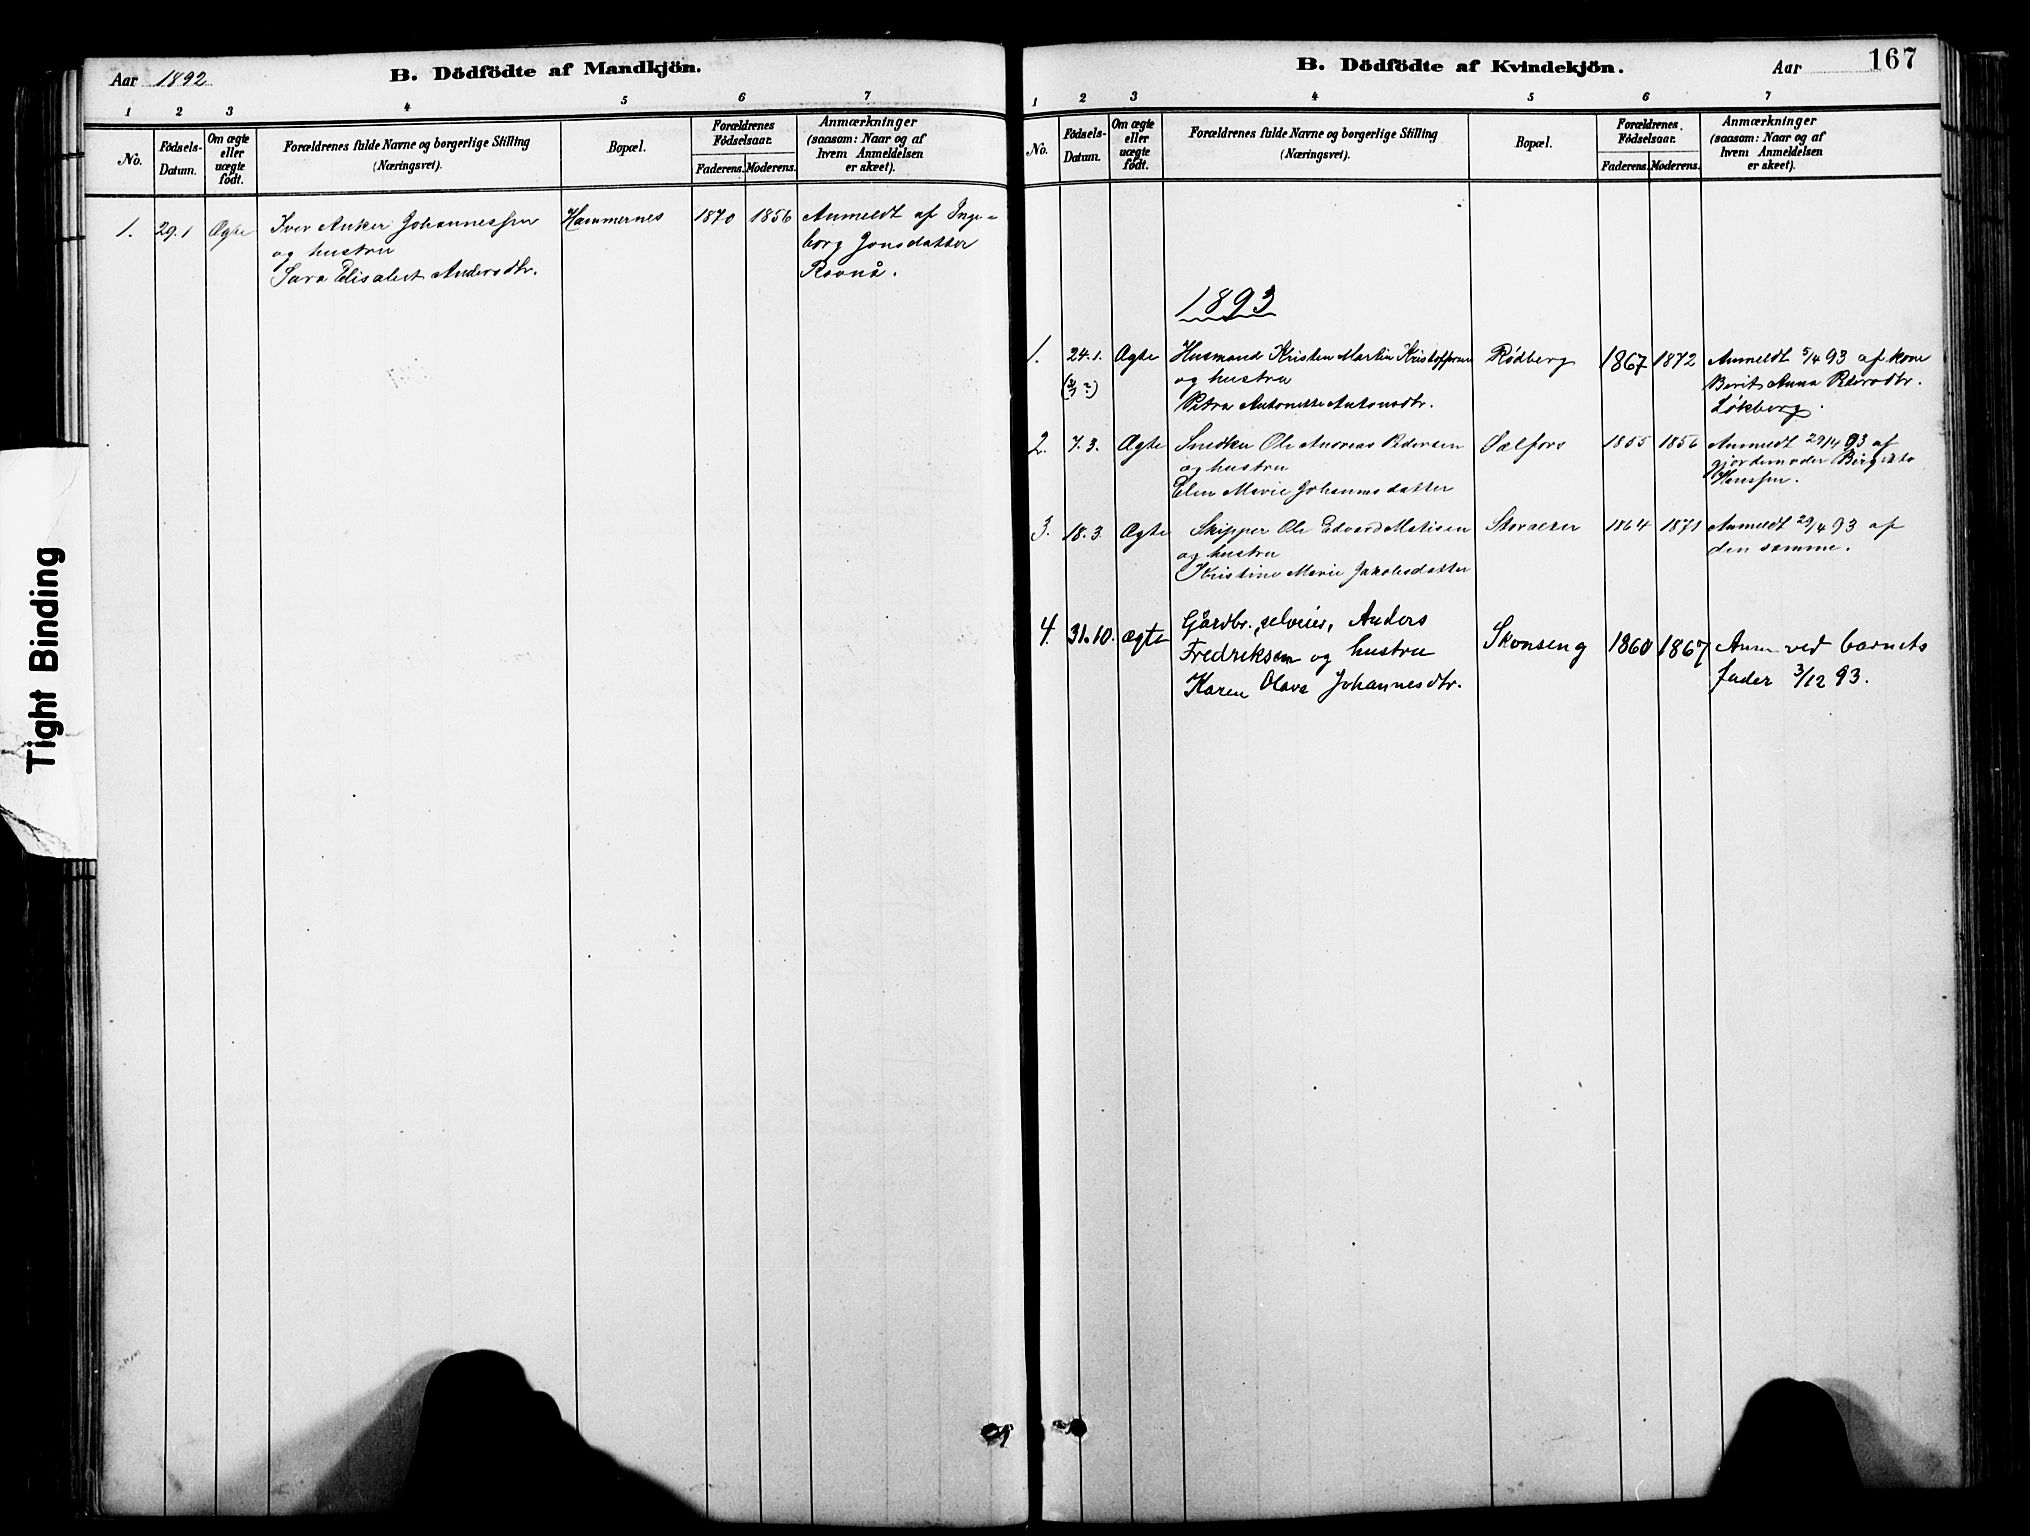 Aar 1892
B. Dödfödte af Mandkjön.
1 2 3 4 5 6 7
No.
Födsels-
Datum.
Om ægte
eller
uægte
födt.
Forældrenes fulde Navne og borgerlige Stilling
(Næringsvei).
Bopæl.
Forældrenes
Födselsaar.
Faderens. Moderens.
Anmærkninger
(saasom: Naar og af
hvem Anmeldelsen
er skeet).
1. 29.1 Ægte Iver Anker Johannessen Hammernes 1870 1856 Anmeldt af Inge-
og hustru borg Jonsdatter
Sara Elisabet Andersdtr. Ravnå.
Tight Binding
B. Dödfödte af Kvindekjön.
Aar
167
1 2 3 4 5 6 7
No.
Födsels-
Datum.
Om ægte
eller
uægte
födt.
Forældrenes fulde Navne og borgerlige Stilling
(Næringsvei).
Bopæl.
Forældrenes
Födselsaar.
Faderens. Moderens.
Anmærkninger
(saasom: Naar og af
hvem Anmeldelsen
er skeet).
1893
1. 24.1. Ægte Husmand Kristen Martin Kristoffersen Rødberg 1867 1872 Anmeldt 5/4 93 af kone
og hustru Berit Anna Pedersdtr.
Petra Antonette Antonsdtr. Løkberg.
2. 7.3. Ægte Snedker Ole Andreas Pedersen Dalfors 1855 1856 Anmeldt 29/4 93 af
og hustru gjordemoder
Elen Marie Johannesdatter Hanssen.
3. 18.3. Ægte Skipper Ole Edvard Matisen 1864 1871 Anmeldt 29/4 93 af
og hustru den samme.
Kristine Marie Jakobsdatter
4. 31.10. ægte Gårdbr., selveier, Anders Skonseng 1860 1867 Anm ved barnets
Fredriksen og hustru fader 3/12 93.
Karen Olava Johannesdtr.